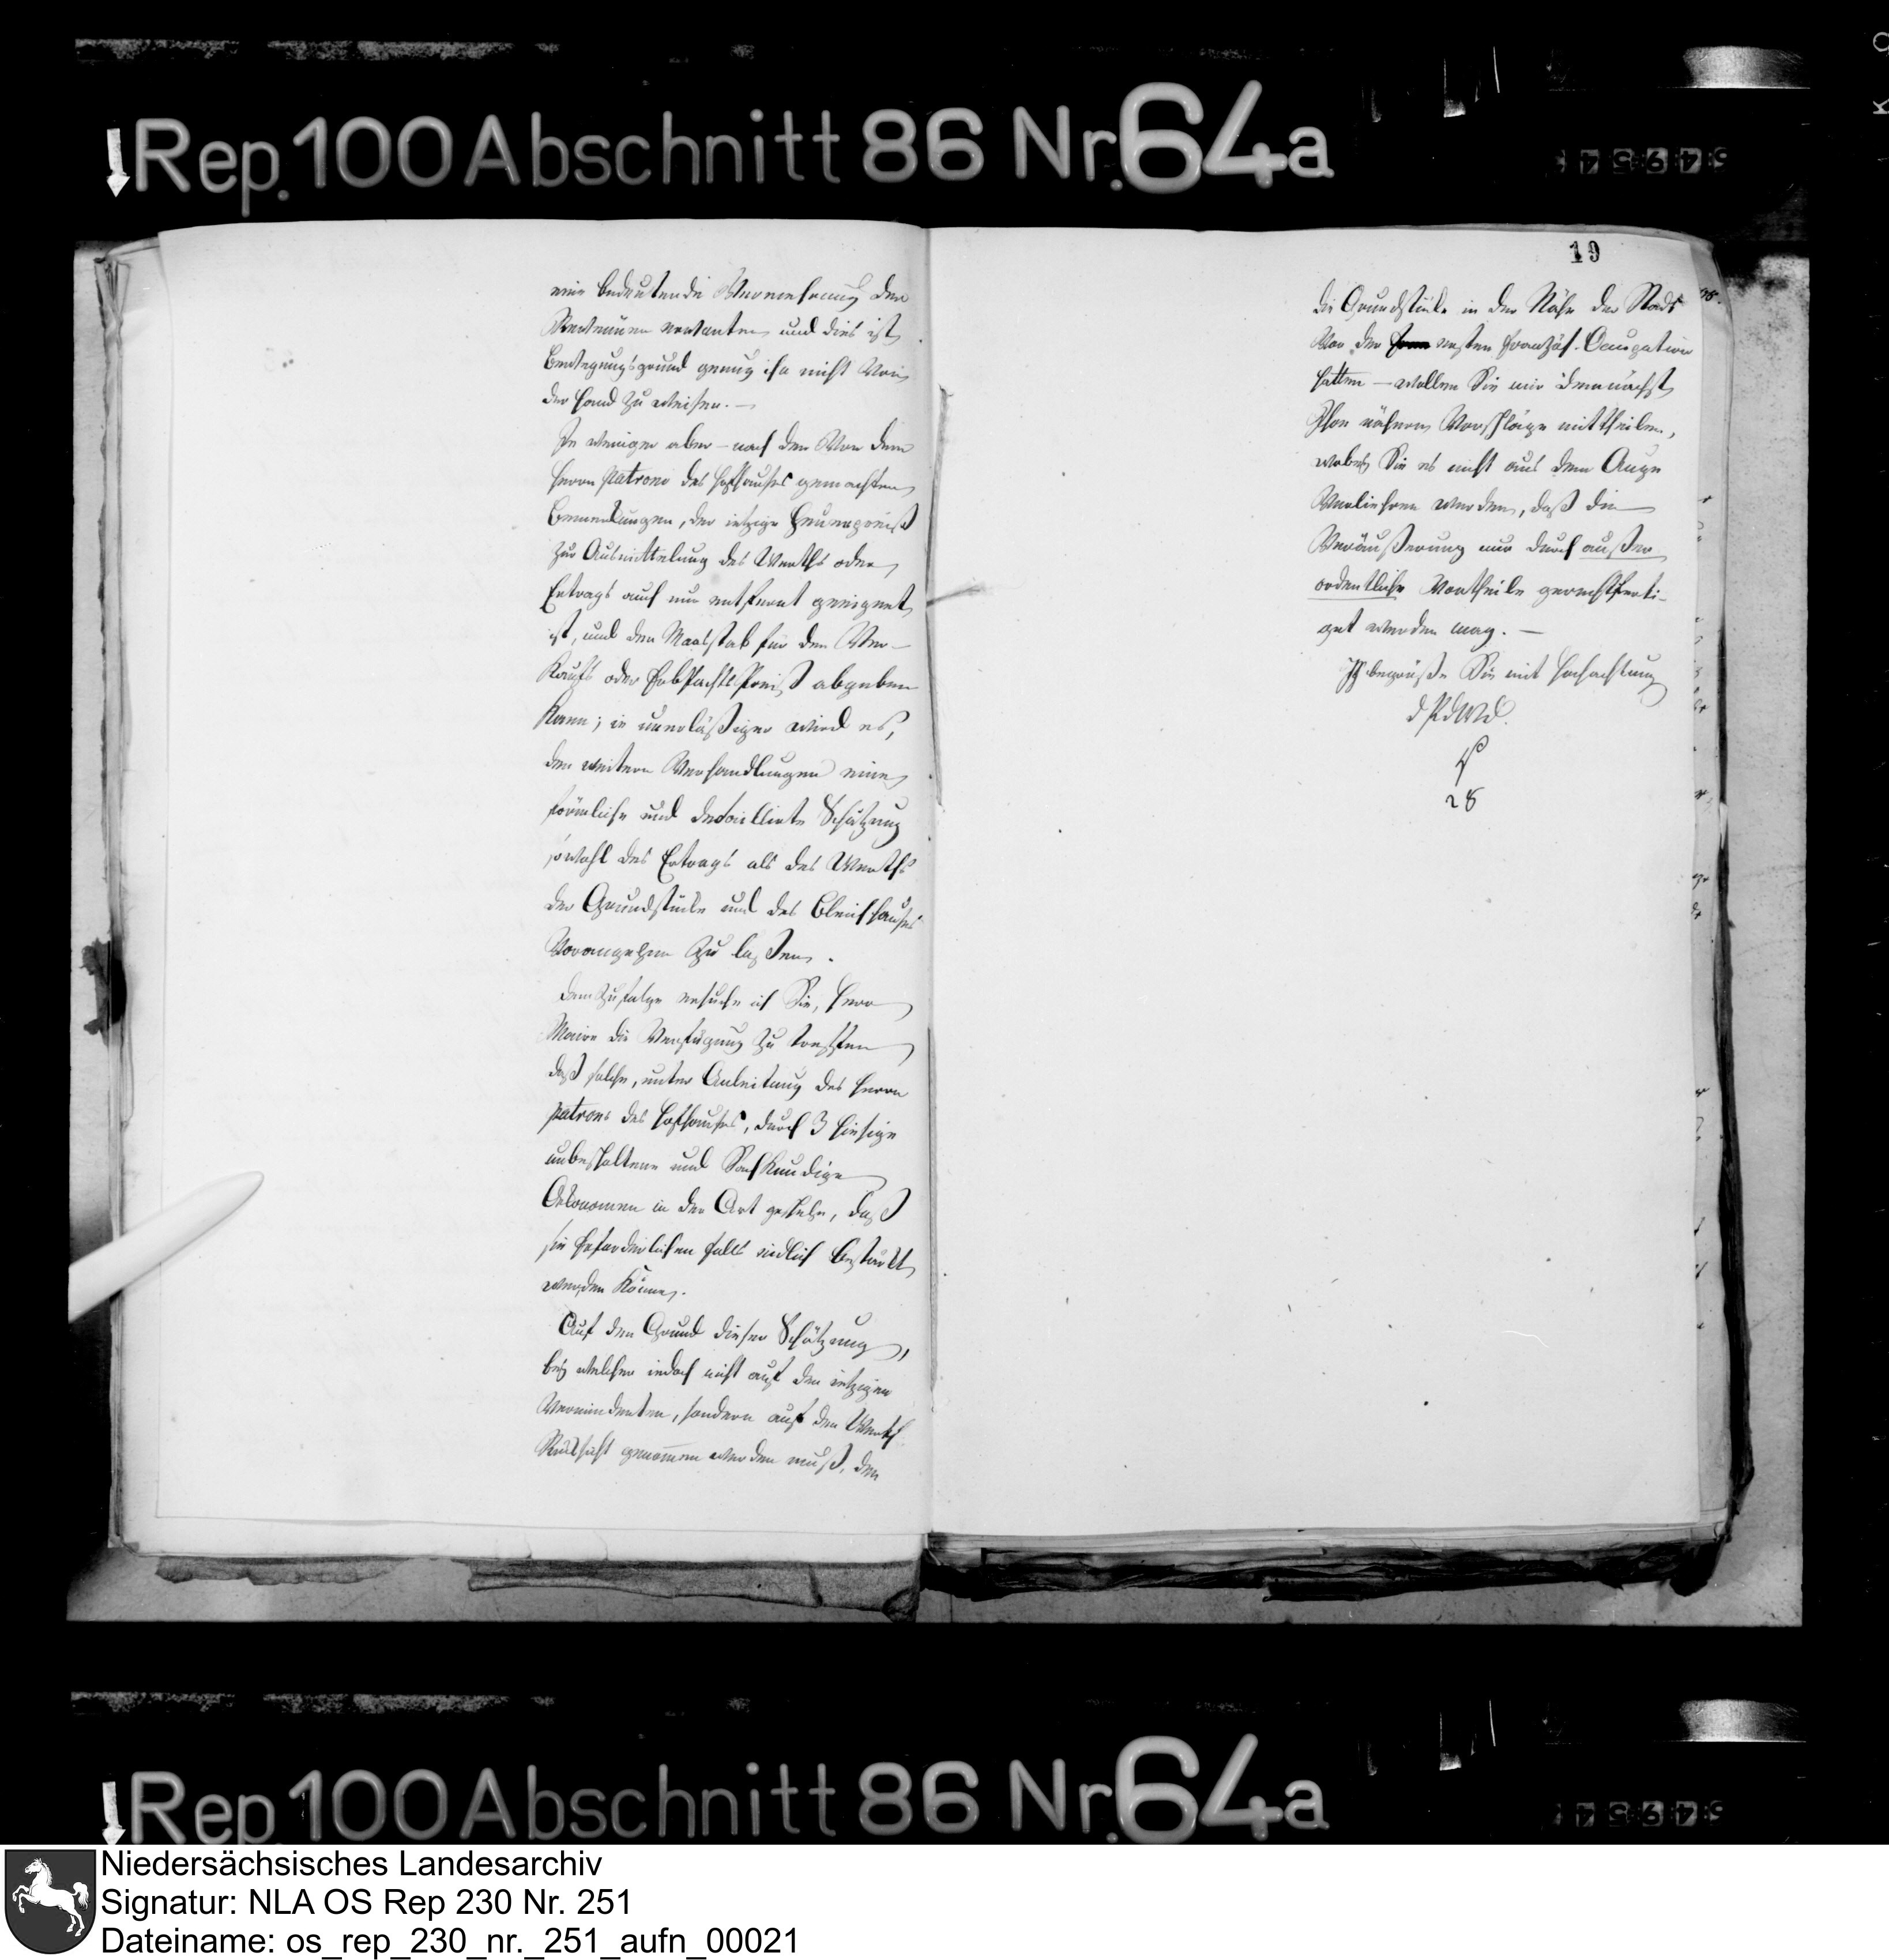 Rep. 100 Abschnitt 86 Nr. 64a
eine bedeutende Vermehrung der
Revenüen erwarten, und dies ist
Bewegungsgrund genug ihn nicht von
der Hand zu weisen. —
Je weniger aber — nach den von dem
Herrn patrono des gemachten
Bemerkungen, der jetzige Heuerpreiß
zur Ausmittelung des Werths oder
Ertrags auch nur entfernt geeignet
ist, und den Maasstab für den Ver-
kaufs oder Erbpachts Preiß abgeben
kann; je unerläßiger wird es,
den weitern Verhandlungen eine
förmliche und detaillirte Schätzung
sowohl des Ertrags als des Werths
der Grundstücke und des Bleichhauses
vorangehen zu laßen.
Demzufolge ersuche ich Sie, Herr
Maire die Verfügung zu treffen
daß solche, unter Anleitung des Herrn
patrons des, durch 3 hiesige
unbescholtene und Sachkundige
Oekonomen in der Art geschehe, daß
sie erforderlichen falls eidlich bestärkt
werden könne.
Auf den Grund dieser Schätzung,
bey welcher jedoch nicht auf den jetzigen
verminderten, sondern auf den Werth
Rücksicht genommen werden muß, den
19
die Grundstücke in der Nähe der Stadt
vor der ersten französ. Occupation
hatten — wollen Sie mir demnächst
Ihre nähern Vorschläge mittheilen,
wobey Sie es nicht aus dem Auge
verliehren werden, daß die
Veräußerung nur durch außer
ordentliche Vortheile gerechtferti-
get werden mag. —
Ich begrüße Sie mit Hochachtung
28
Rep. 100 Abschnitt 86 Nr. 64a
Niedersächsisches Landesarchiv
Signatur: NLA OS Rep 230 Nr. 251
Dateiname: os_rep_230_nr._251_aufn_00021